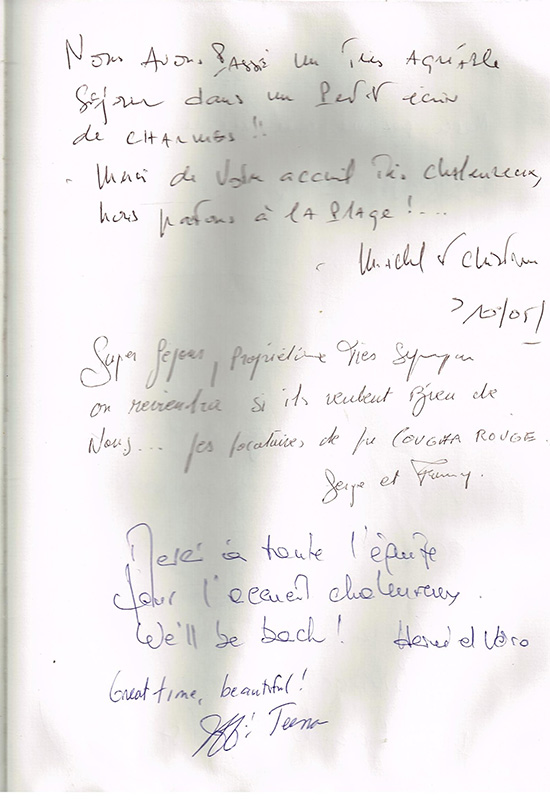 Nous Avons Passé un Très Agréable
Séjour dans un Petit écrin
de CHARMES !!
- Merci de Votre accueil Très chaleureux,
nous partons à LA PLAGE !...
- Michel et
10/05/
Super Séjour, Propriétaire Très Sympa
on reviendra si ils veulent Bien de
Nous... Les locataires de la COUGHA ROUGE.
Serge et Fanny.
Merci à toute l'équipe
Pour l'accueil chaleureux.
We'll be back! Hervé et Véro
Great time, beautiful!
Teena